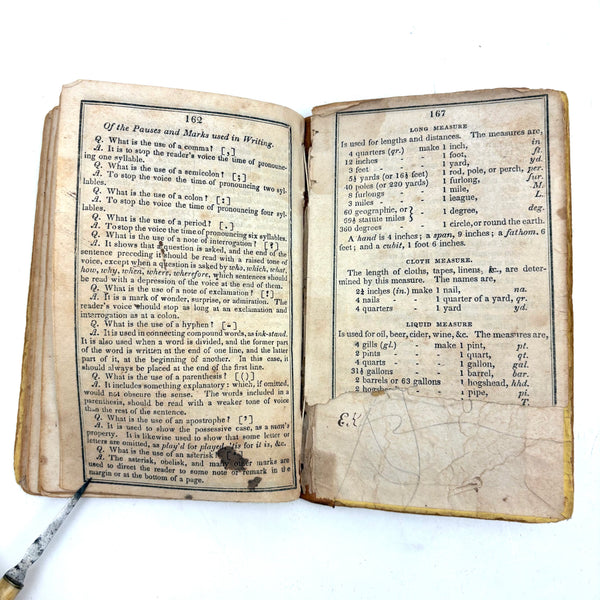 162
Of the Pauses and Marks used in Writing.
Q. What is the use of a comma? [,]
A. It is to stop the reader's voice the time of pronounc-
ing one syllable.
Q. What is the use of a semicolon? [;]
A. To stop the voice the time of pronouncing two syl-
lables.
Q. What is the use of a colon? [:]
A. To stop the voice the time of pronouncing four syl-
lables.
Q. What is the use of a period? [.]
A. To stop the voice the time of pronouncing six syllables.
Q. What is the use of a note of interrogation? [?]
A. It shows that a question is asked, and the end of the
sentence preceding it should be read with a raised tone of
voice, except when a question is asked by who, which, what,
how, why, when, where, wherefore, which sentences should
be read with a depression of the voice at the end of them.
Q. What is the use of a note of exclamation? [!]
A. It is a mark of wonder, surprise, or admiration. The
reader's voice should stop as long at an exclamation and
interrogation as at a colon.
Q. What is the use of a hyphen? [-]
A. It is used in connecting compound words, as ink-stand.
It is also used when a word is divided, and the former part
of the word is written at the end of one line, and the latter
part of it, at the beginning of another. In this case, it
should always be placed at the end of the first line.
Q. What is the use of a parenthesis? [()]
A. It includes something explanatory: which, if omitted,
would not obscure the sense. The words included in a
parenthesis, should be read with a weaker tone of voice
than the rest of sentence.
Q. What is the use of an apostrophe? [']
A. It is used to show the possessive case, as a man's
property. It is likewise used to show that some letter or
letters are omitted, as play'd for played, 'tis for it is, &c.
Q. What is the use of an asterisk
A. The asterisk, obelisk, and many other marks are
used to direct the reader to some note or remark in the
margin or at the bottom of a page.
167
LONG MEASURE
Is used for lengths and distances. The measures are,
4 quarters (gr.) make 1 inch, in
12 inches 1 foot, ft.
3 feet 1 yard, yd.
5½ yards (or 16½ feet) 1 rod, pole, or perch, per.
40 poles (or 220 yards) 1 furlong, fur.
8 furlongs 1 mile, M.
3 miles 1 league, L.
60 geographic, or
69½ statute miles } 1 degree, deg.
360 degrees 1 circle, or round the earth.
A hand is 4 inches; a span, 9 inches; a fathom, 6
feet; and a cubit, 1 foot 6 inches.
CLOTH MEASURE.
The length of cloths, tapes, linens, &c., are deter-
mined by this measure. The names are,
2¼ inches (in.) make 1 nail, na.
4 nails 1 quarter of a yard, qr.
4 quarters 1 yard yd.
LIQUID MEASURE
Is used for oil, beer, cider, wine, &c. The measures are,
4 gills (gl.) make 1 pint, pt.
2 pints 1 quart, qt.
4 quarts 1 gallon, gal.
31½ gallons 1 barrel, bar.
2 barrels or 63 gallons 1 hogshead, hhd.
2 hogsh 1 pipe, pi.
T.